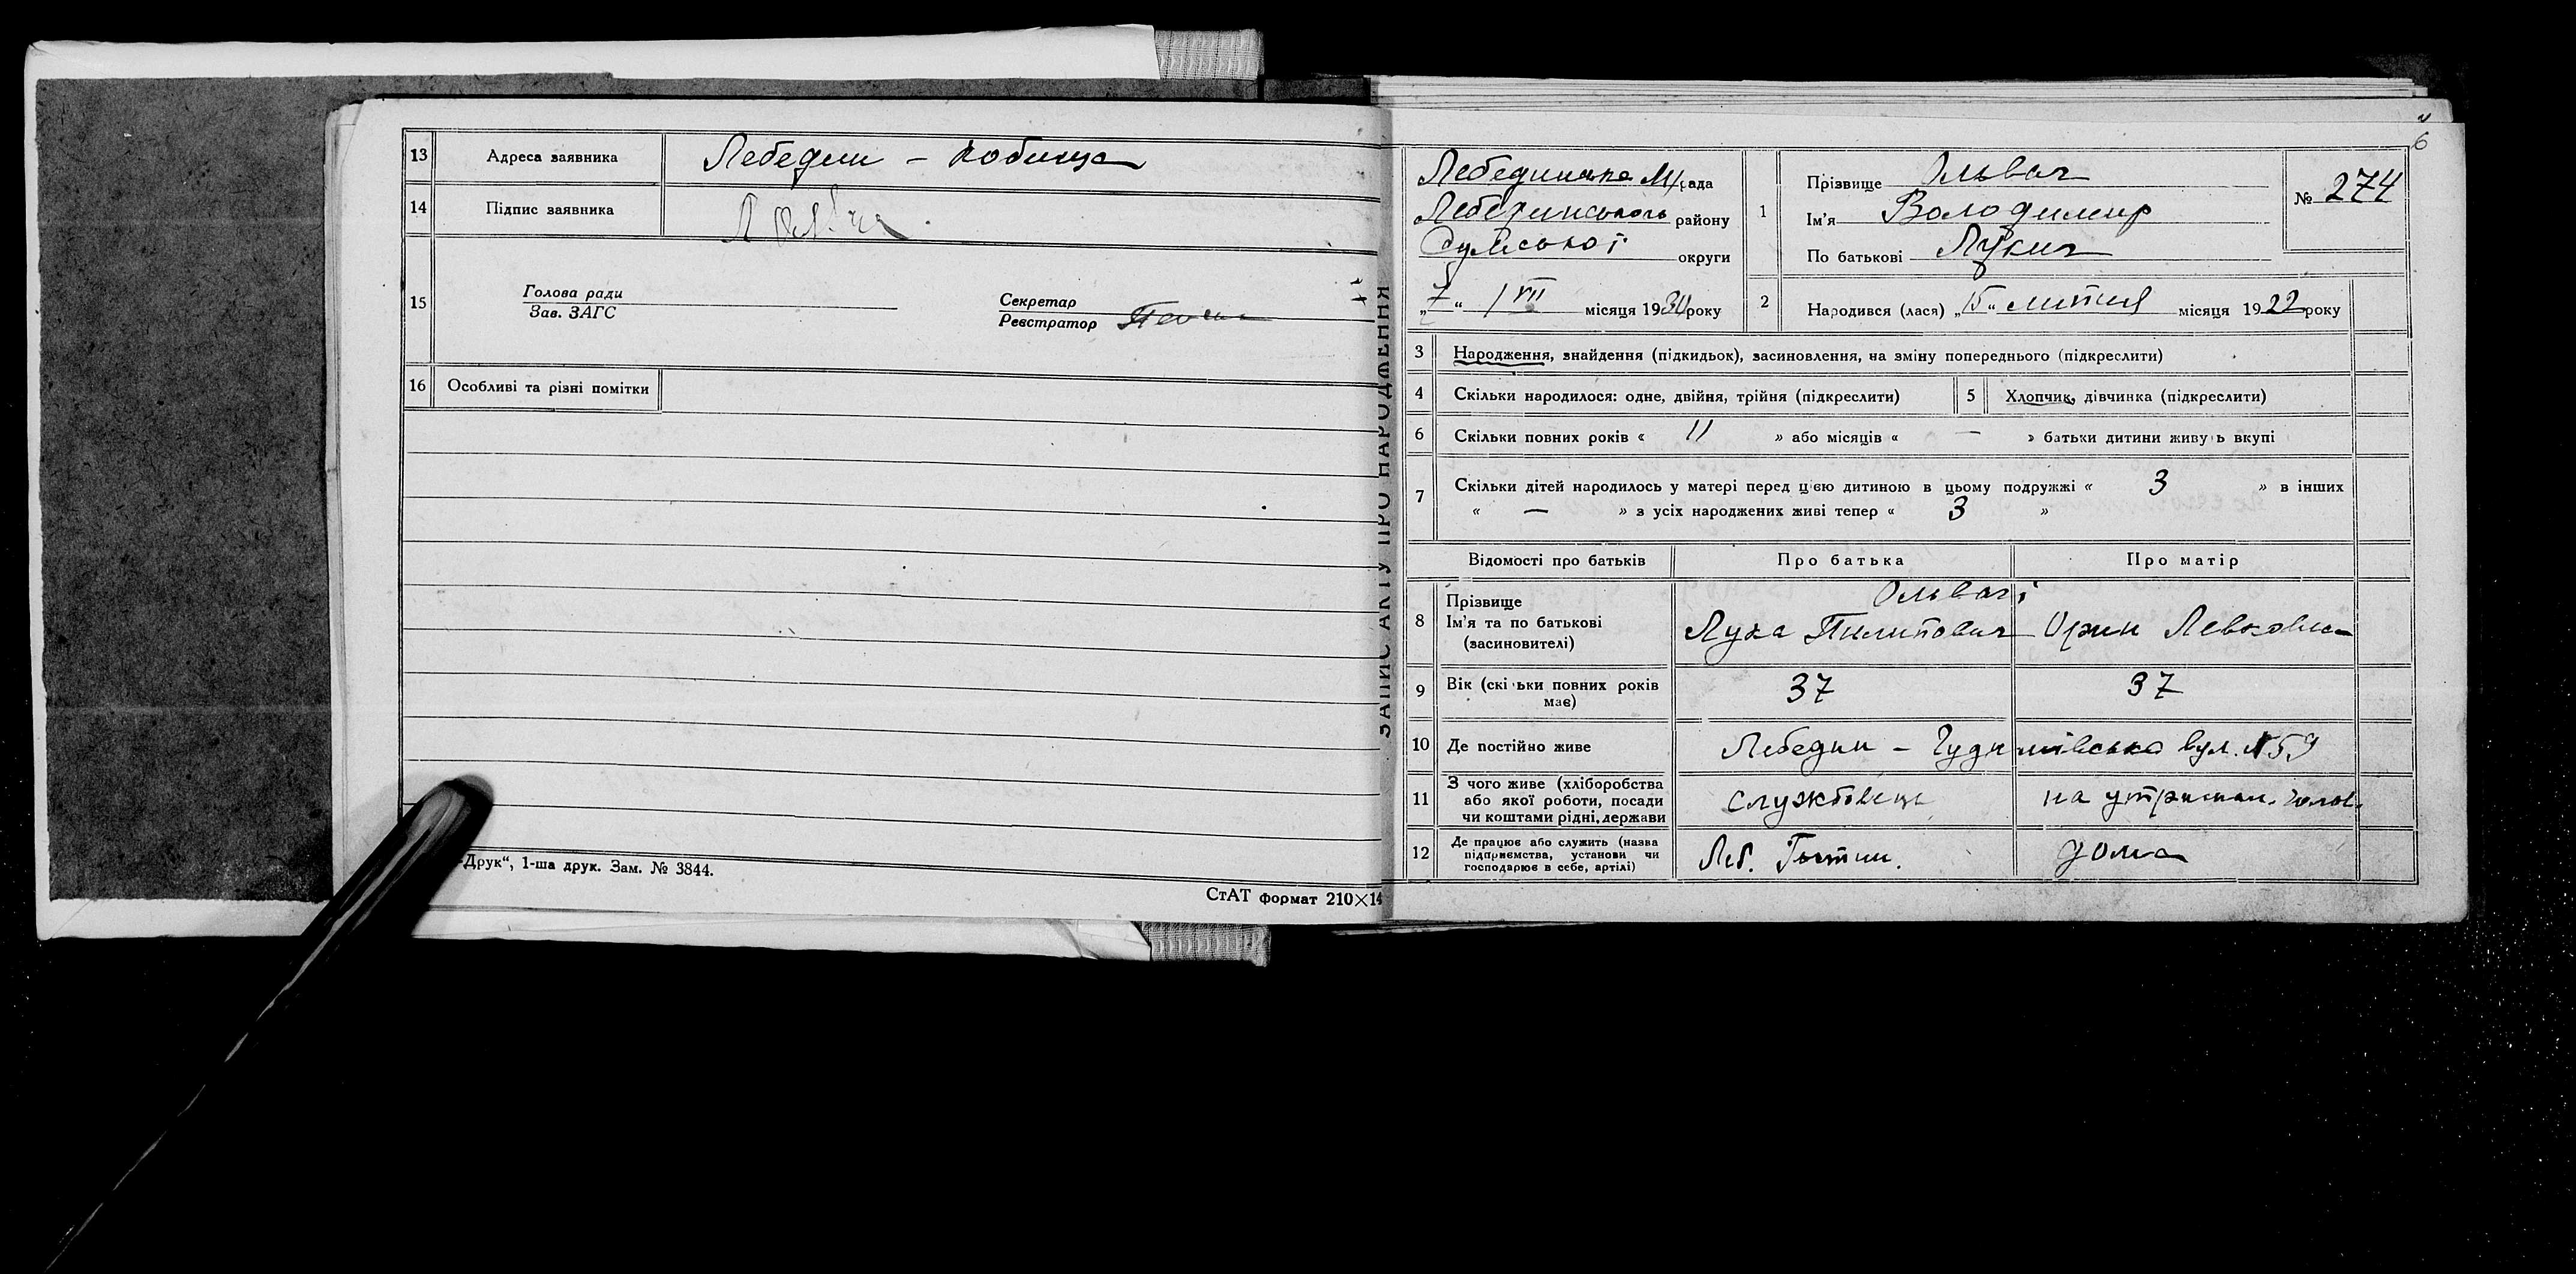 13 Адреса заявника Лебедин –
14 Підпис заявника
15 Голова ради
Зав. ЗАГС
Секретар
Реєстратор
16 Особливі та різні помітки
Друк“, 1-ша друк. Зам. № 3844.
СтАТ формат 210×14
ЗАПИС АКТУ ПРО НАРОДЖЕННЯ
6
Лебединська М/рада
Лебединського району
Сумської округи
„7“ VII місяця 1930 року
1 Прізвище Ольвач
Ім'я Володимир
По батькові Лукич
№ 274
2 Народився (лася) „15“ липня місяця 1922 року
3 Народження, знайдення (підкидьок), засиновлення, на зміну попереднього (підкреслити)
4 Скільки народилося: одне, двійня, трійня (підкреслити) 5 Хлопчик, дівчинка (підкреслити)
6 Скільки повних років « 11 » або місяців « — » батьки дитини живу ь вкупі
7 Скільки дітей народилось у матері перед цією дитиною в цьому подружжі « 3 » в інших
« — » з усіх народжених живі тепер « 3 »
Відомості про батьків Про батька Про матір
8 Прізвище Ольвачі
Ім'я та по батькові Лука Пилипович Орин Левковна
(засновителі)
9 Вік (скі ьки повних років 37 37
має)
10 Де постійно живе Лебедин – вул. № 59
11 З чого живе (хліборобства
або якої роботи, посади службовець на утриман. чолов.
чи коштами рідні, держави
12 Де працює або служить (назва
підприємства, установи чи Леб. дома
господарює в себе, артілі)